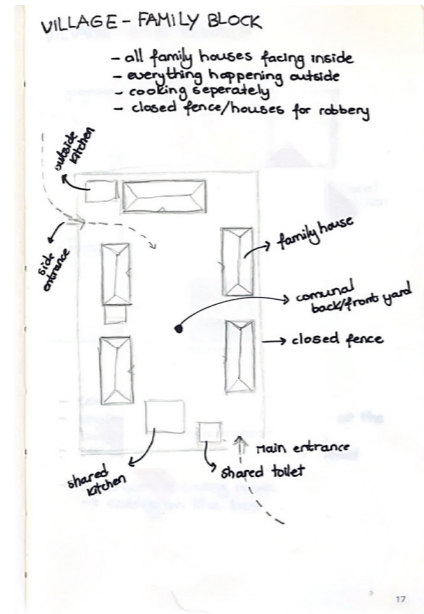 VILLAGE - FAMILY BLOCK
- all family houses facing inside
- everything happening outside
- cooking seperately
- closed fence/houses for robbery
outside
kitchen
side
entrance
family house
comunal
back/front yard
closed fence
Main entrance
shared
kitchen
shared toilet
17